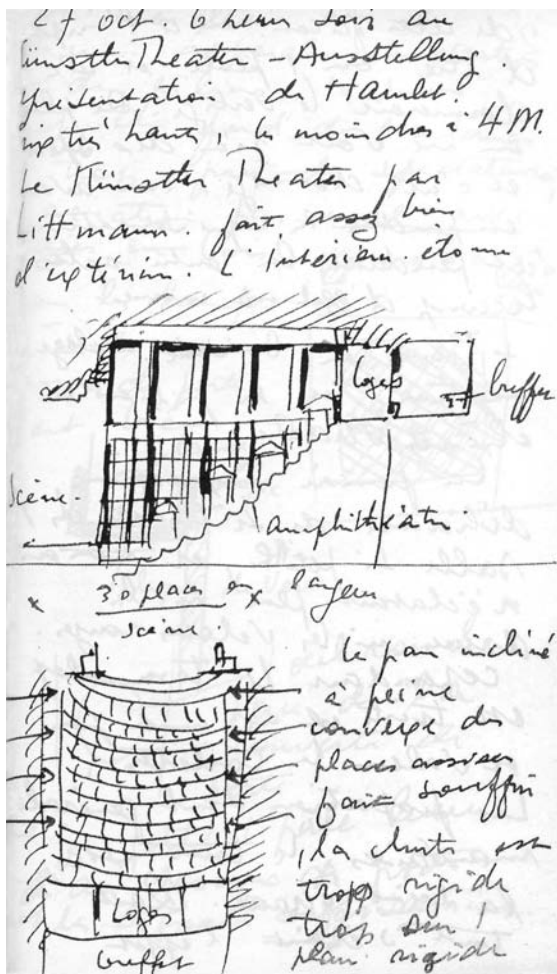 27 oct. 6 heures soir au
ünstler Theater - Ausstellung.
présentation de Hamlet.
très hauts, les moindres à 4 M.
Le Künstler Theater par
Littmann. fait assez bien
d'extérieur. L'intérieur étonne
Loges
buffet
Scène.
amphithéâtre
x 30 places en x largeur
Scène.
le pan incliné
à peine
converge des
places assises
fait souffrir
, la chute est
trop rigide
trop sur
plan rigide
Loges
buffet